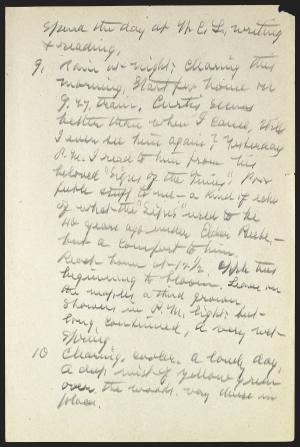 spend the day at W. C. L. writing
& reading.
9. Rain at night; clearing this
morning. Start for home on
9.47 train. Curtis seems
better than when I came. Will
I ever see him again? Yesterday
P.M. I read to him from his
beloved "Signs of the Times." Poor
feeble stuff to me - a kind of echo
of what the "Signs" used to be
40 years ago under Elder Beebe, -
but a comfort to him.
Reach home at 12½. Apple trees
beginning to bloom. Leaves on
the maples a third grown.
Showers in P.M. light but
long continued, a very wet
spring.
10 Clearing, cooler. a lovely day,
A deep mist of yellow green
over the woods. very dense in
places.